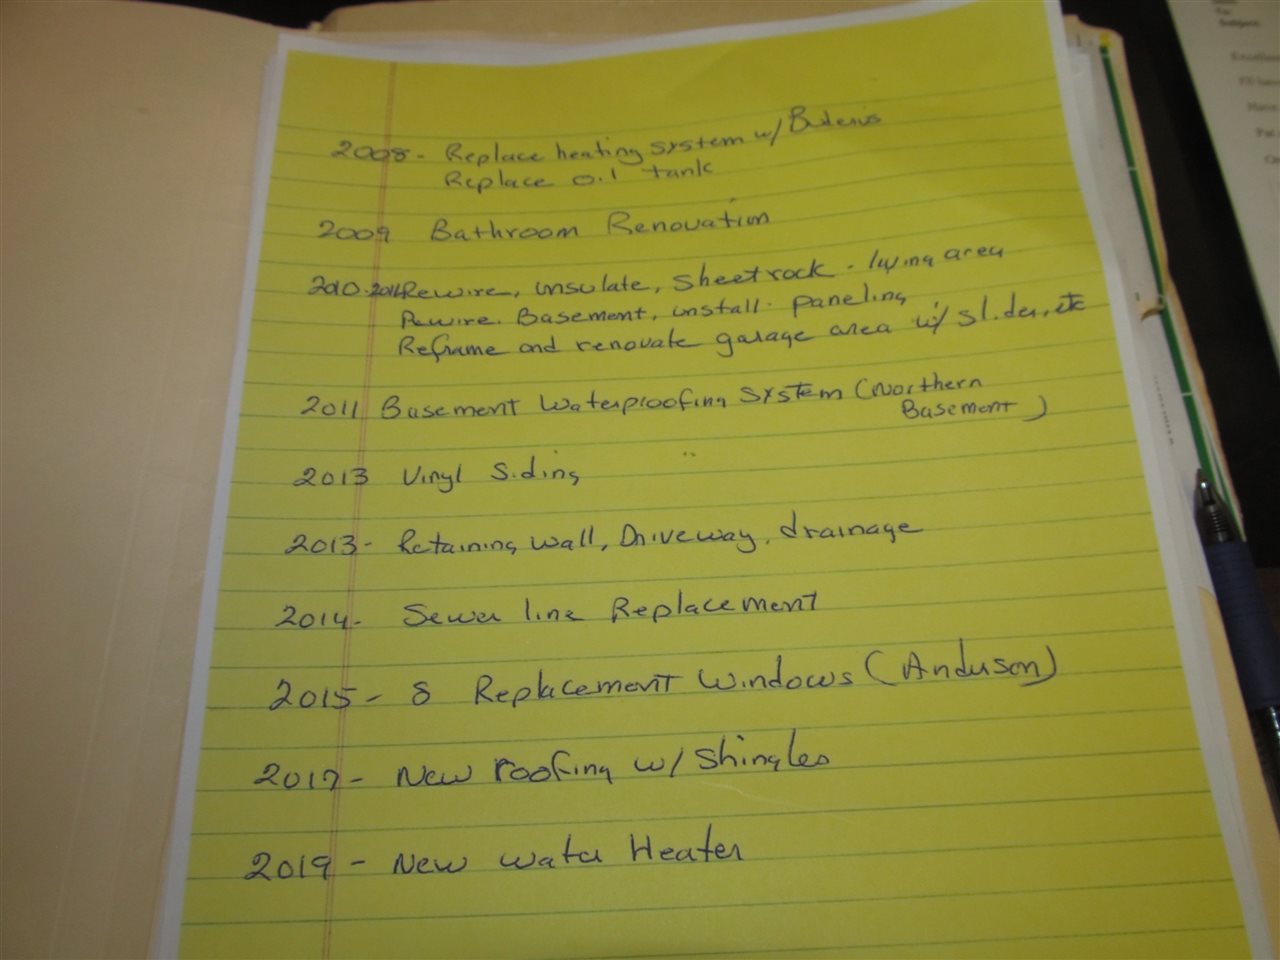 2008- Replace heating system w/ Buderus
Replace oil tank
2009 Bathroom Renovation
2010-2011 Rewire, insulate, sheetrock - living area
Rewire. Basement, install paneling
Reframe and renovate garage area w/ slider, etc
2011 Basement Waterproofing System (Northern
Basement)
2013 Vinyl Siding
2013- Retaining wall, Driveway, drainage
2014- Sewer line Replacement
2015- 8 Replacement Windows (Anderson)
2017- New roofing w/ shingles
2019- New water Heater
Subject: